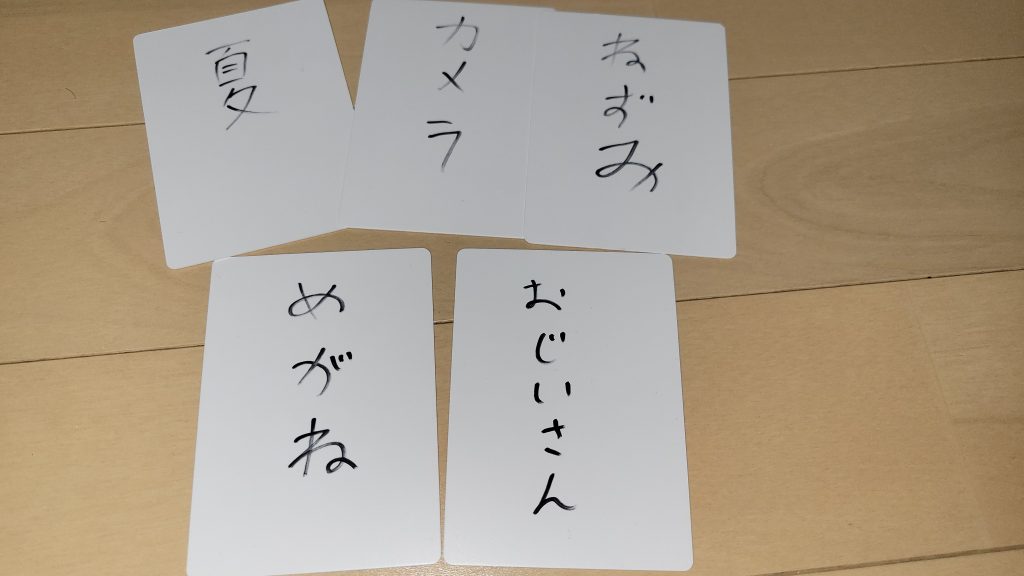 夏
カメラ
ねずみ
めがね
おじいさん